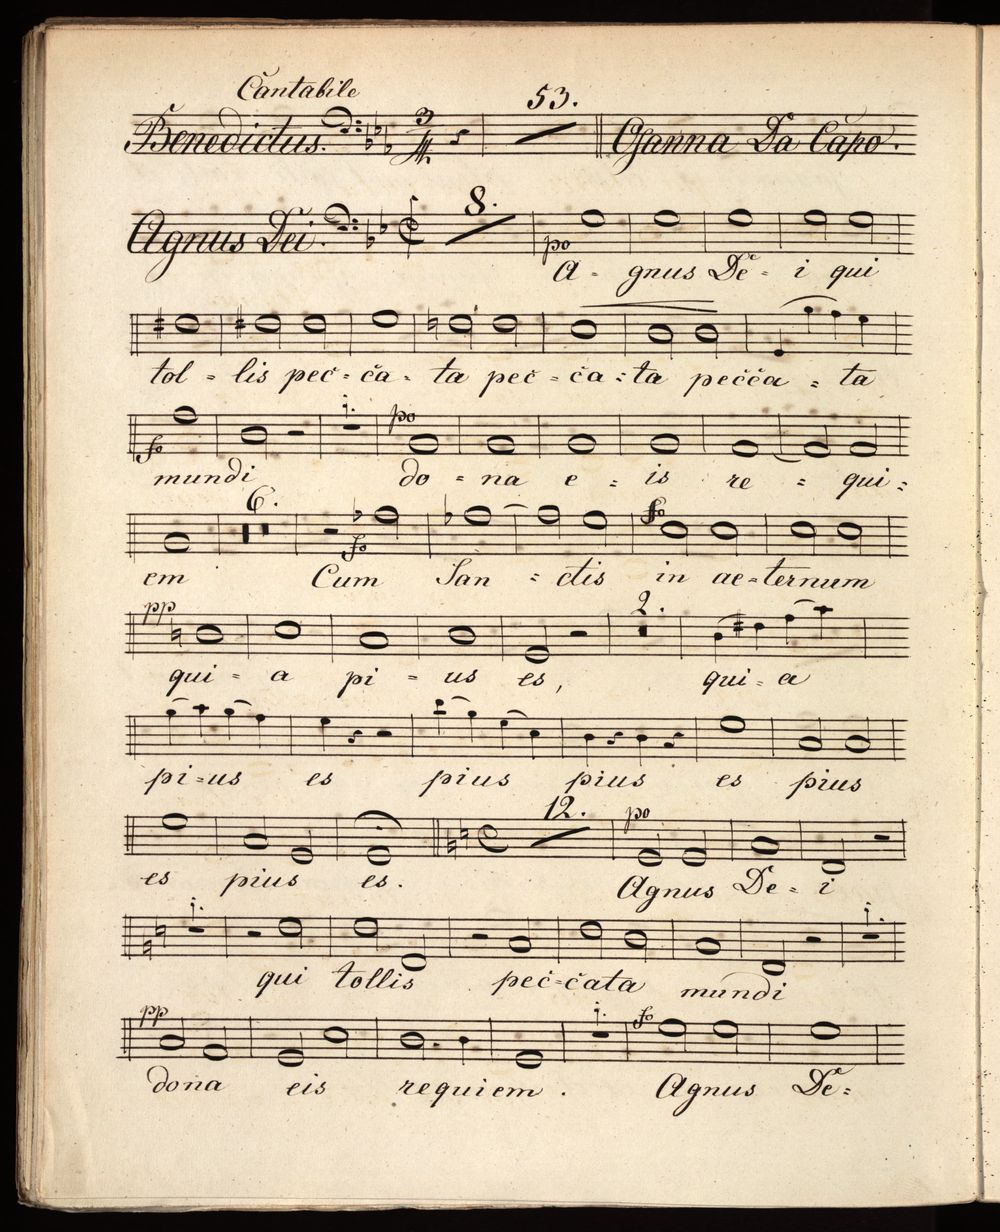 Cantabile
53.
Benedictus. 3/4 Osanna Da Capo.
8.
Agnus Dei.
po
A - gnus De - i qui
tol - lis pec - ca - ta pec - ca - ta pecca - ta
1. po
fo
mundi do - na e - is re - qui -
6. fo
fo
em Cum San - ctis in ae - ternum
pp 2.
qui - a pi - us es, qui - a
pi - us es pius pius es pius
12. po
es pius es. Agnus De - i
1. 1.
qui tollis pec - cata mundi
pp 1. fo
dona eis requiem. Agnus De -